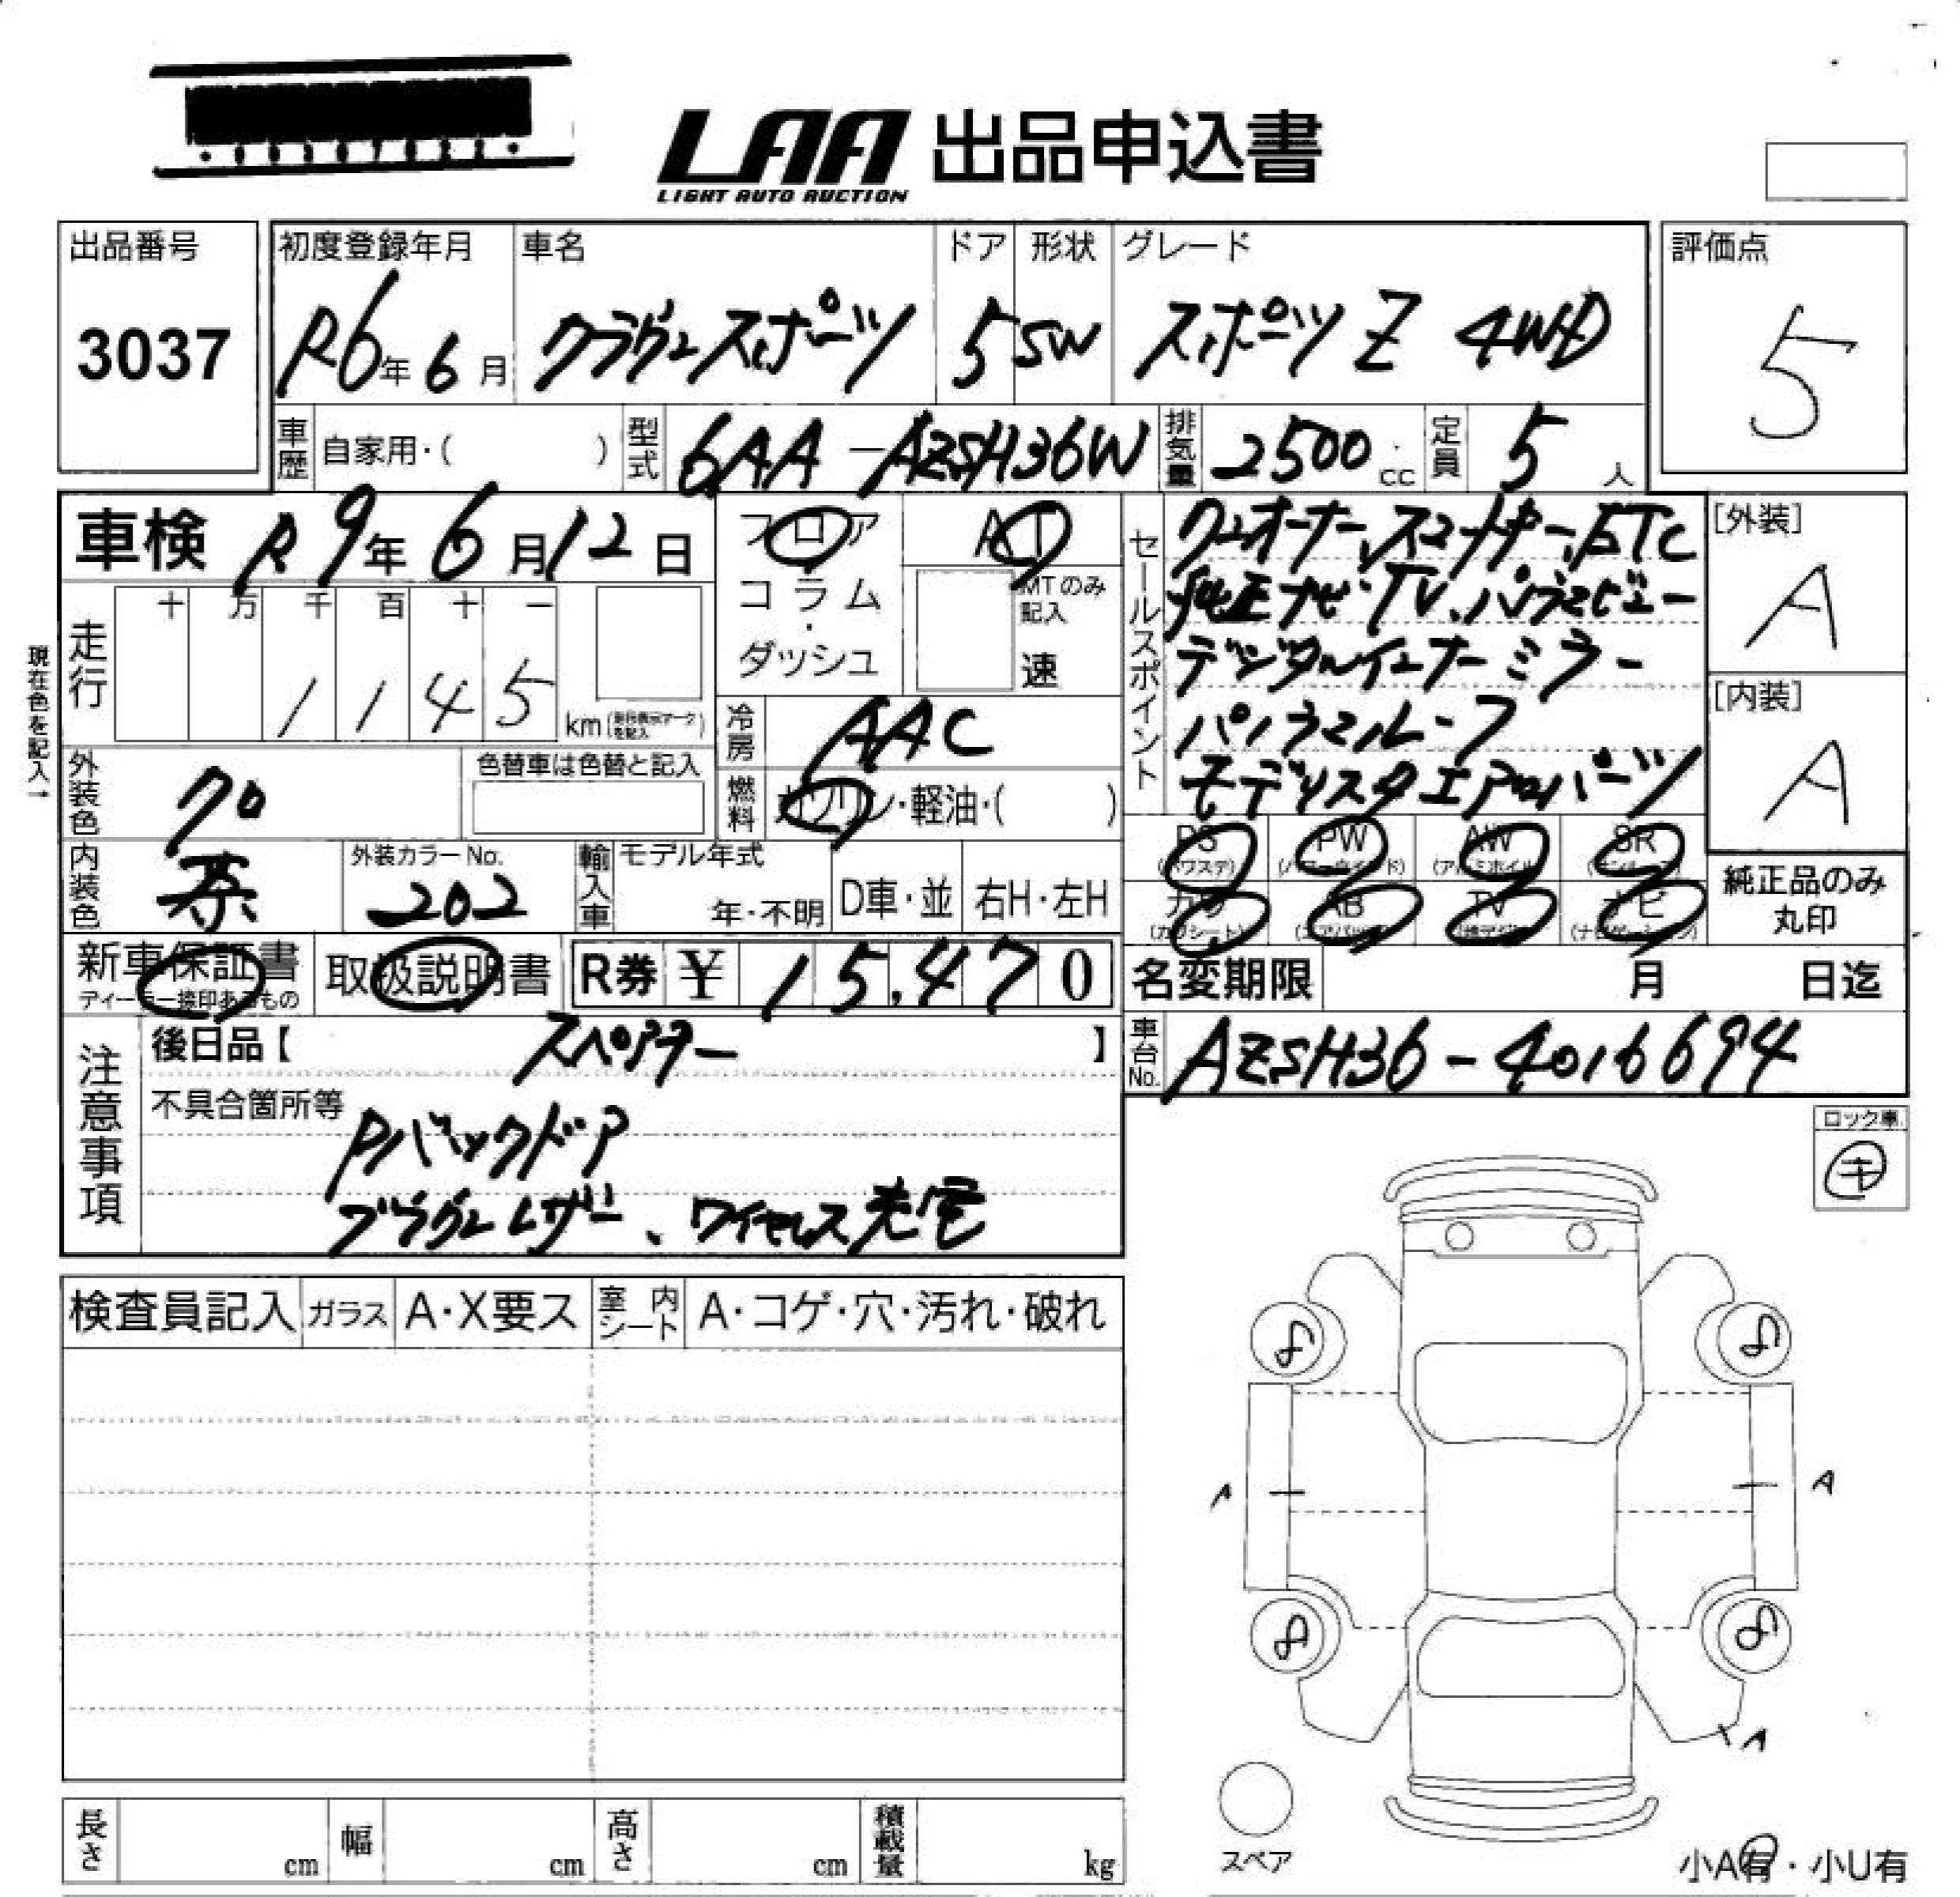 LAA 出品申込書
LIGHT AUTO AUCTION
出品番号
3037
初度登録年月
R6年6月
車名
クラウンスポーツ
ドア
5
形状
SW
グレード
スポーツ Z 4WD
評価点
5
車歴
自家用・( )
型式
6AA-AZSH36W
排気量
2500cc
定員
5人
車検 R9年6月12日
フロア
コラム
・
ダッシュ
AT
MTのみ記入
速
セールスポイント
ワンオーナー、スマートキー、ETC
純正ナビ・TV、パノラマビュー
デジタルインナーミラー
パノラマルーフ
モデリスタエアロパーツ
[外装]
A
[内装]
A
現在色を記入→
走行
十 万 千 百 十 一
1 1 4 5
km
冷房
AAC
外装色
クロ
色替車は色替と記入
燃料
ガソリン・軽油・( )
内装色
茶
外装カラーNo.
202
輸入車
モデル年式
年・不明
D車・並
右H・左H
PS (パワステ)
PW (パワーウインド)
AW (アルミホイル)
SR (サンルーフ)
カワ (カワシート)
AB (エアバッグ)
TV (地デジ)
ナビ (ナビゲーション)
純正品のみ
丸印
新車保証書
ディーラー捺印あるもの
取扱説明書
R券 ¥ 15,470
名変期限 月 日迄
注意事項
後日品【 スペアキー 】
車台No.
AZSH36-4016694
不具合箇所等
Pバックドア
ブラウンレザー、ワイヤレス充電
ロック車
キ
検査員記入
ガラス
A・X要ス
室内シート
A・コゲ・穴・汚れ・破れ
8 8
A A
8 8
A
スペア
小A有・小U有
長さ cm
幅 cm
高さ cm
積載量 kg